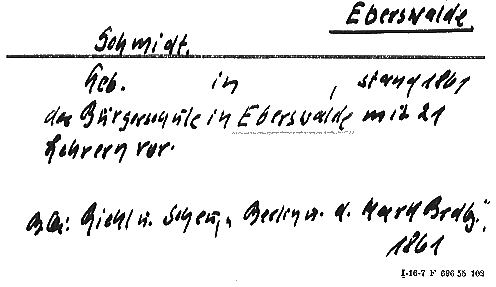 Eberswalde.
Schmidt.
Geb. in , stand 1861
der Bürgerschule in Eberswalde mit 21
Lehrern vor.
Riehl u. Scheu, "Berlin u. d. Mark Brdbg.",
1861
I-16-7 F 696 55 103